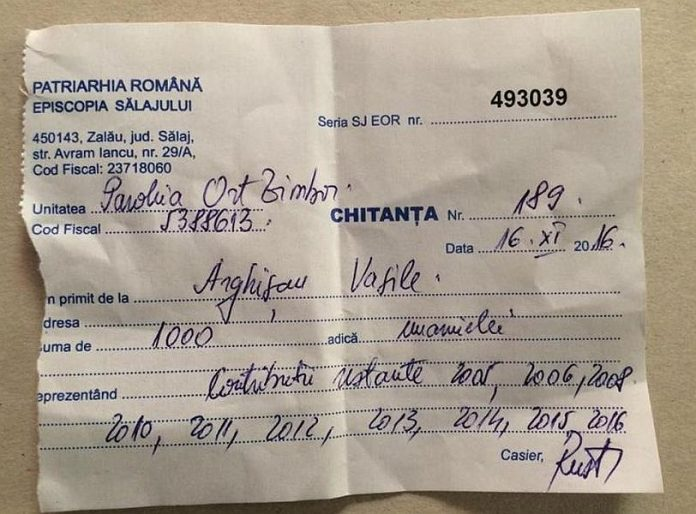 PATRIARHIA ROMÂNĂ
EPISCOPIA SĂLAJULUI
Seria SJ EOR nr. 493039
450143, Zalău, jud. Sălaj,
str. Avram Iancu, nr. 29/A,
Cod Fiscal: 23718060
Unitatea Parohia Ort Zimbor.
Cod Fiscal 5388613.
CHITANȚA Nr. 189.
Data 16. XI 2016.
n primit de la Arghișan Vasile.
dresa
uma de 1000 adică unamielei
eprezentând Contributii restante 2005, 2006, 2008
2010, 2011, 2012, 2013, 2014, 2015 2016
Casier,